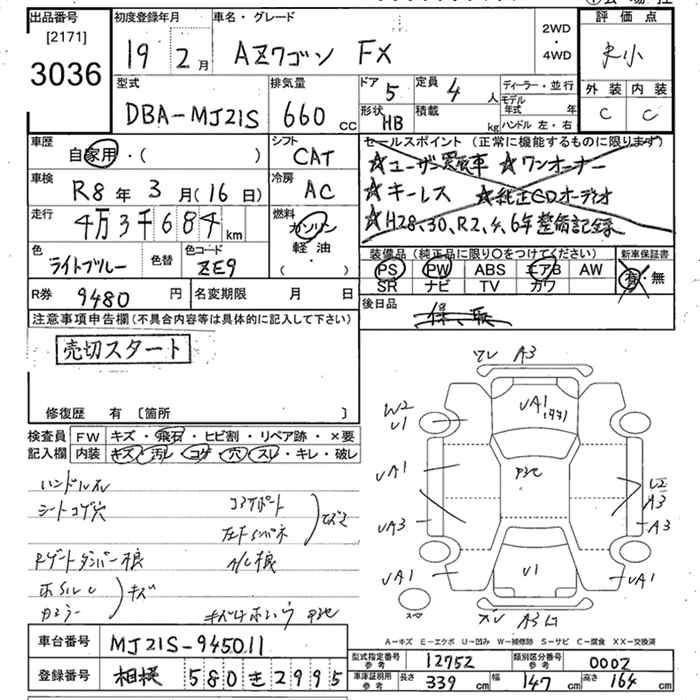 出品番号 初度登録年月 車名・グレード 評価点
[2171]
3036
19 2月 AZワゴン FX 2WD・4WD
型式 排気量 ドア 5 定員 4人 ディーラー・並行
DBA-MJ21S 660cc 形状 HB 積載 kg モデル年式 年
ハンドル 左・右
外装 内装
C C
車歴 自家用・( ) シフト CAT
車検 R8年3月(16日) 冷房 AC
走行 4万3千684km 燃料 ガソリン・軽油・( )
色 ライトブルー 色替 色コード ZE9
R券 9480円 名変期限 月 日
セールスポイント (正常に機能するものに限ります)
☆ユーザー買取車 ☆ワンオーナー
☆キーレス ☆純正CDオーディオ
☆H28、30、R2、4、6年整備記録
装備品 (純正品に限り○をつけてください) 新車保証書
PS PW ABS エアB AW 有・無
SR ナビ TV カワ
後日品
注意事項申告欄(不具合内容等は具体的に記入して下さい)
売切スタート
修復歴 有 [箇所 ]
検査員記入欄 FW キズ・飛石・ヒビ割・リペア跡・×要
内装 キズ・汚レ・コゲ・穴・スレ・キレ・破レ
ハンドルスレ
シートコゲ穴
キズ
A3
UA1
W2
U1
UA1
UA3
UA1
A3
A3
UA1
U1
A3
A-キズ E-エクボ U-凹み W-補修跡 S-サビ C-腐食 XX-交換済
車台番号 MJ21S-945011
登録番号 相模 580き2995
型式指定番号 参考 12752 類別区分番号 参考 0002
車庫証明用 参考 長さ 339cm 幅 147cm 高さ 164cm